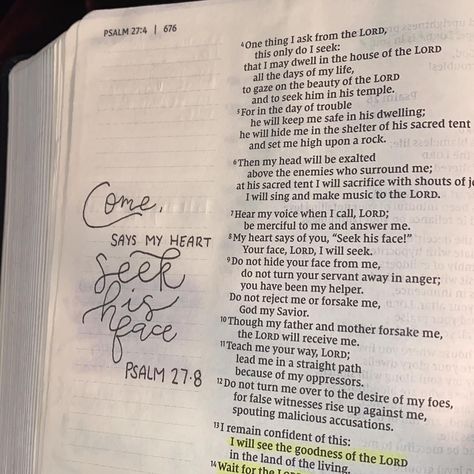 PSALM 27:4 | 676
⁴One thing I ask from the LORD,
this only do I seek:
that I may dwell in the house of the LORD
all the days of my life,
to gaze on the beauty of the LORD
and to seek him in his temple.
⁵For in the day of trouble
he will keep me safe in his dwelling;
he will hide me in the shelter of his sacred tent
and set me high upon a rock.
⁶Then my head will be exalted
above the enemies who surround me;
at his sacred tent I will sacrifice with shouts of
I will sing and make music to the LORD.
⁷Hear my voice when I call, LORD;
be merciful to me and answer me.
⁸My heart says of you, “Seek his face!”
Your face, LORD, I will seek.
⁹Do not hide your face from me,
do not turn your servant away in anger;
you have been my helper.
Do not reject me or forsake me,
God my Savior.
¹⁰Though my father and mother forsake me,
the LORD will receive me.
¹¹Teach me your way, LORD;
lead me in a straight path
because of my oppressors.
¹²Do not turn me over to the desire of my foes,
for false witnesses rise up against me,
spouting malicious accusations.
¹³I remain confident of this:
I will see the goodness of the LORD
in the land of the living.
¹⁴Wait for the LORD
Come,
SAYS MY HEART
Seek
his
face
PSALM 27:8